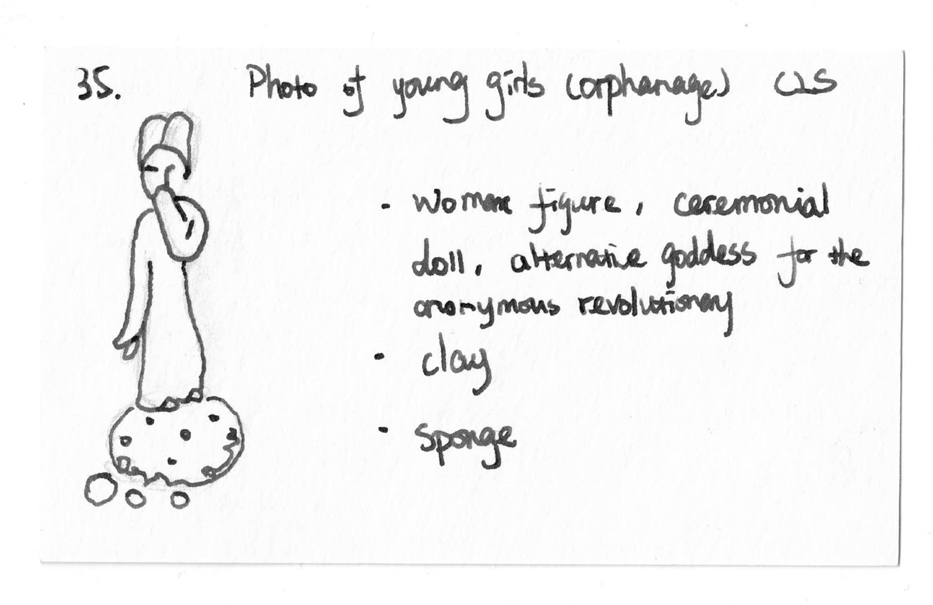 35.
Photo of young girls (orphanage) CLS
- women figure, ceremonial
doll, alternative goddess for the
anonymous revolutionary
- clay
- sponge